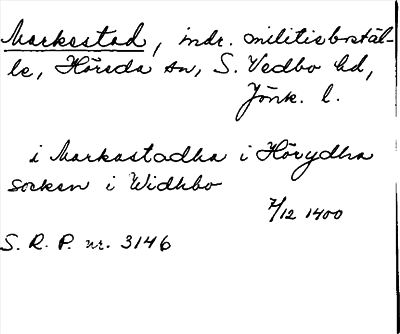 Markestad, indr. militieboställ-
le, Höreda sn, S. Vedbo hd,
Jönk. l.
i Markastadha i Hörydha
socken i Widhbo
7/12 1400
S. R. P. nr. 3146